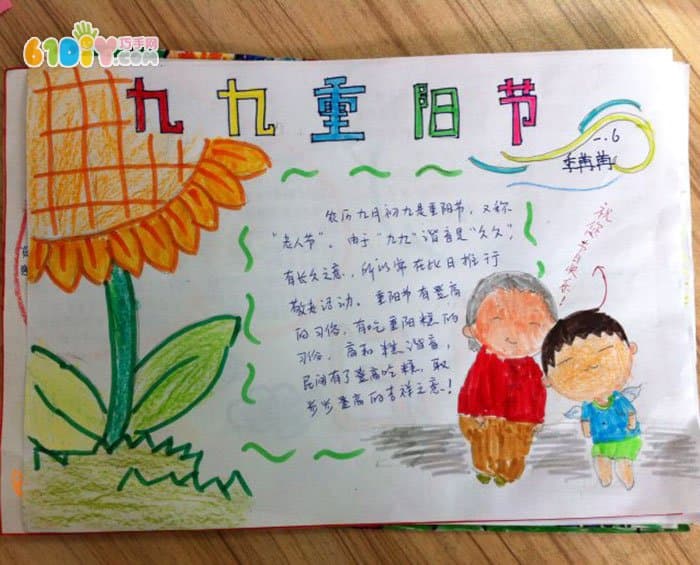 61DIY巧手网
.COM
九九重阳节
一.6
李冉冉
农历九月初九是重阳节，又称
"老人节"。由于"九九"谐音是"久久"，
有长久之意，所以常在此日推行
敬老活动。重阳节有登高
的习俗，有吃重阳糕的
习俗，高和糕谐音，
民间有了登高吃糕，取
步步登高的吉祥之意！
祝你节日快乐！